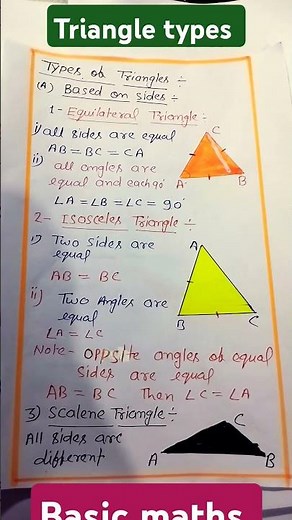 Triangle types
Types of Triangles ÷
(A) Based on sides ÷
1- Equilateral Triangle ÷
i) all sides are equal
AB = BC = CA
ii) all angles are
equal and each 90°
∠A = ∠B = ∠C = 90°
C
A
B
2- Isosceles Triangle ÷
i) Two sides are
equal
AB = BC
ii) Two Angles are
equal
∠A = ∠C
A
B
C
Note- OPPSite angles of equal
sides are equal
AB = BC Then ∠C = ∠A
3) Scalene Triangle ÷
All sides are
different
C
A
B
Basic maths